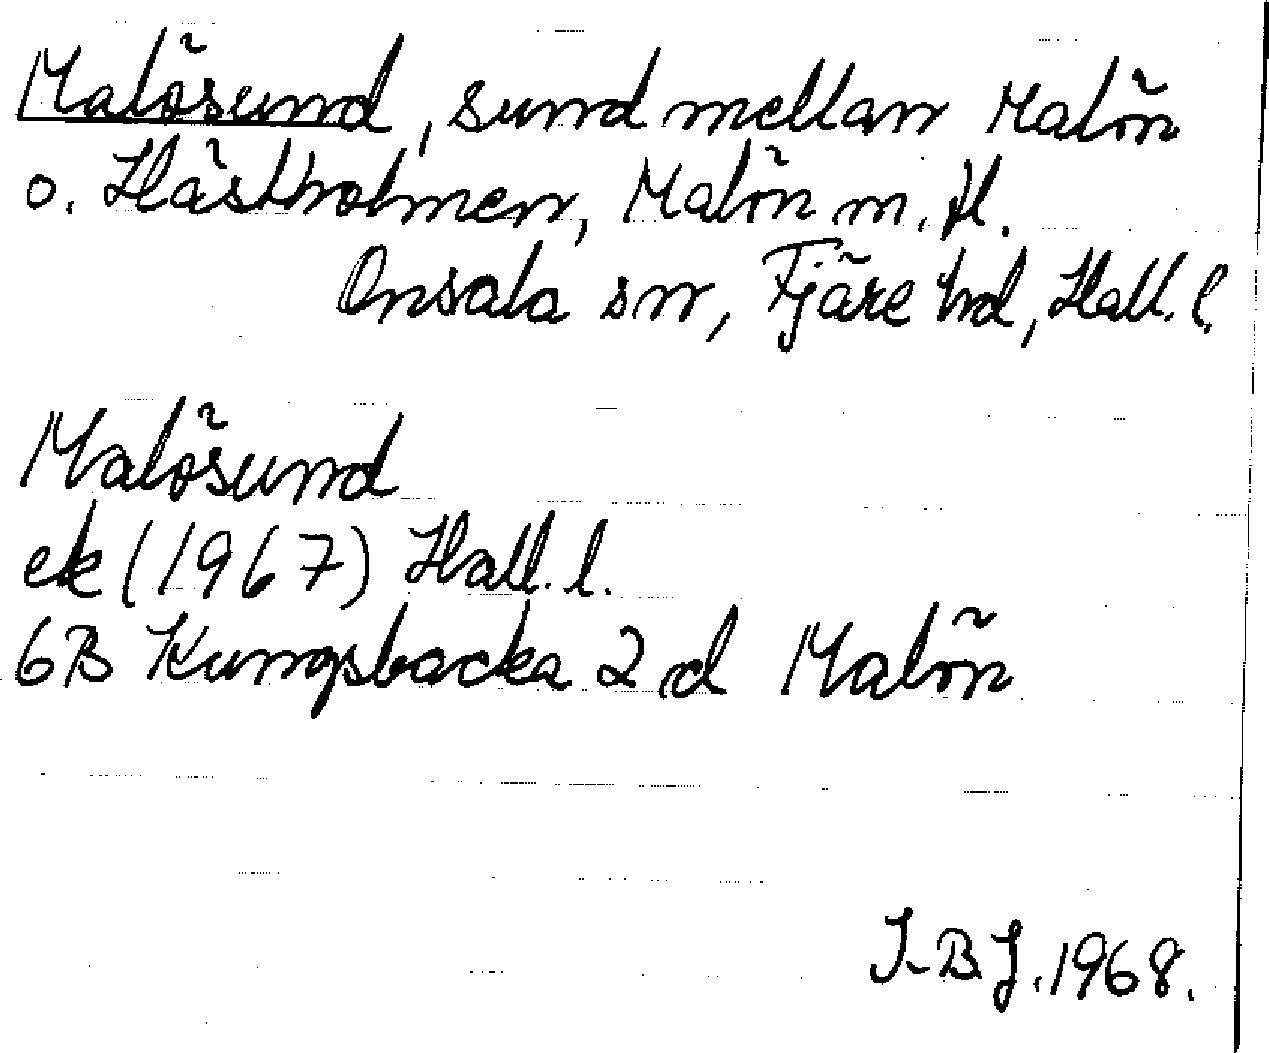 Malösund, sund mellan Malön
o. Hästholmen, Malön m. fl.
Onsala sn, Fjäre hd, Hall. l.
Malösund
ek (1967) Hall. l.
6B Kungsbacka 2 d Malön
I-BJ. 1968.